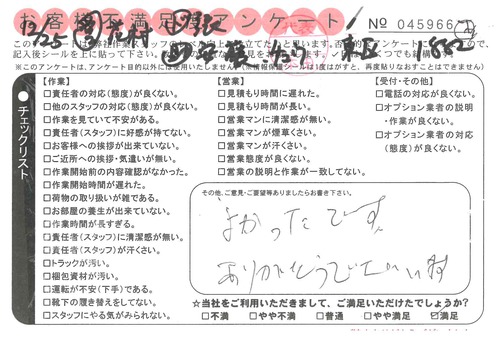 お客様不満足度アンケート!
No 0459662
※このアンケートは、アンケート目的以外には使用いたしません。
チェックリスト
【作業】
□責任者の対応(態度)が良くない。
□他のスタッフの対応(態度)が良くない。
□作業を見ていて不安がある。
□責任者(スタッフ)に好感が持てない。
□お客様への挨拶が出来ていない。
□ご近所への挨拶・気遣いが無い。
□作業開始前の内容確認がなかった。
□作業開始時間が遅れた。
□荷物の取り扱いが雑である。
□お部屋の養生が出来ていない。
□作業時間が長すぎる。
□責任者(スタッフ)に清潔感が無い。
□責任者(スタッフ)が汗くさい。
□トラックが汚い。
□梱包資材が汚い。
□運転が不安(下手)である。
□靴下の履き替えをしてない。
□スタッフにやる気がみられない。
【営業】
□見積もり時間に遅れた。
□見積もり時間が長い。
□営業マンに清潔感が無い。
□営業マンが煙草くさい。
□営業マンが汗くさい。
□営業態度が良くない。
□営業の説明と作業が一致してない。
【受付・その他】
□電話の対応が良くない。
□オプション業者の説明・作業が良くない。
□オプション業者の対応(態度)が良くない。
その他、ご意見・ご要望等ありましたらお書き下さい。
よかったです。
ありがとうございます
☆当社をご利用いただきまして、ご満足いただけたでしょうか?
□不満 □やや不満 □普通 □やや満足 ☑満足